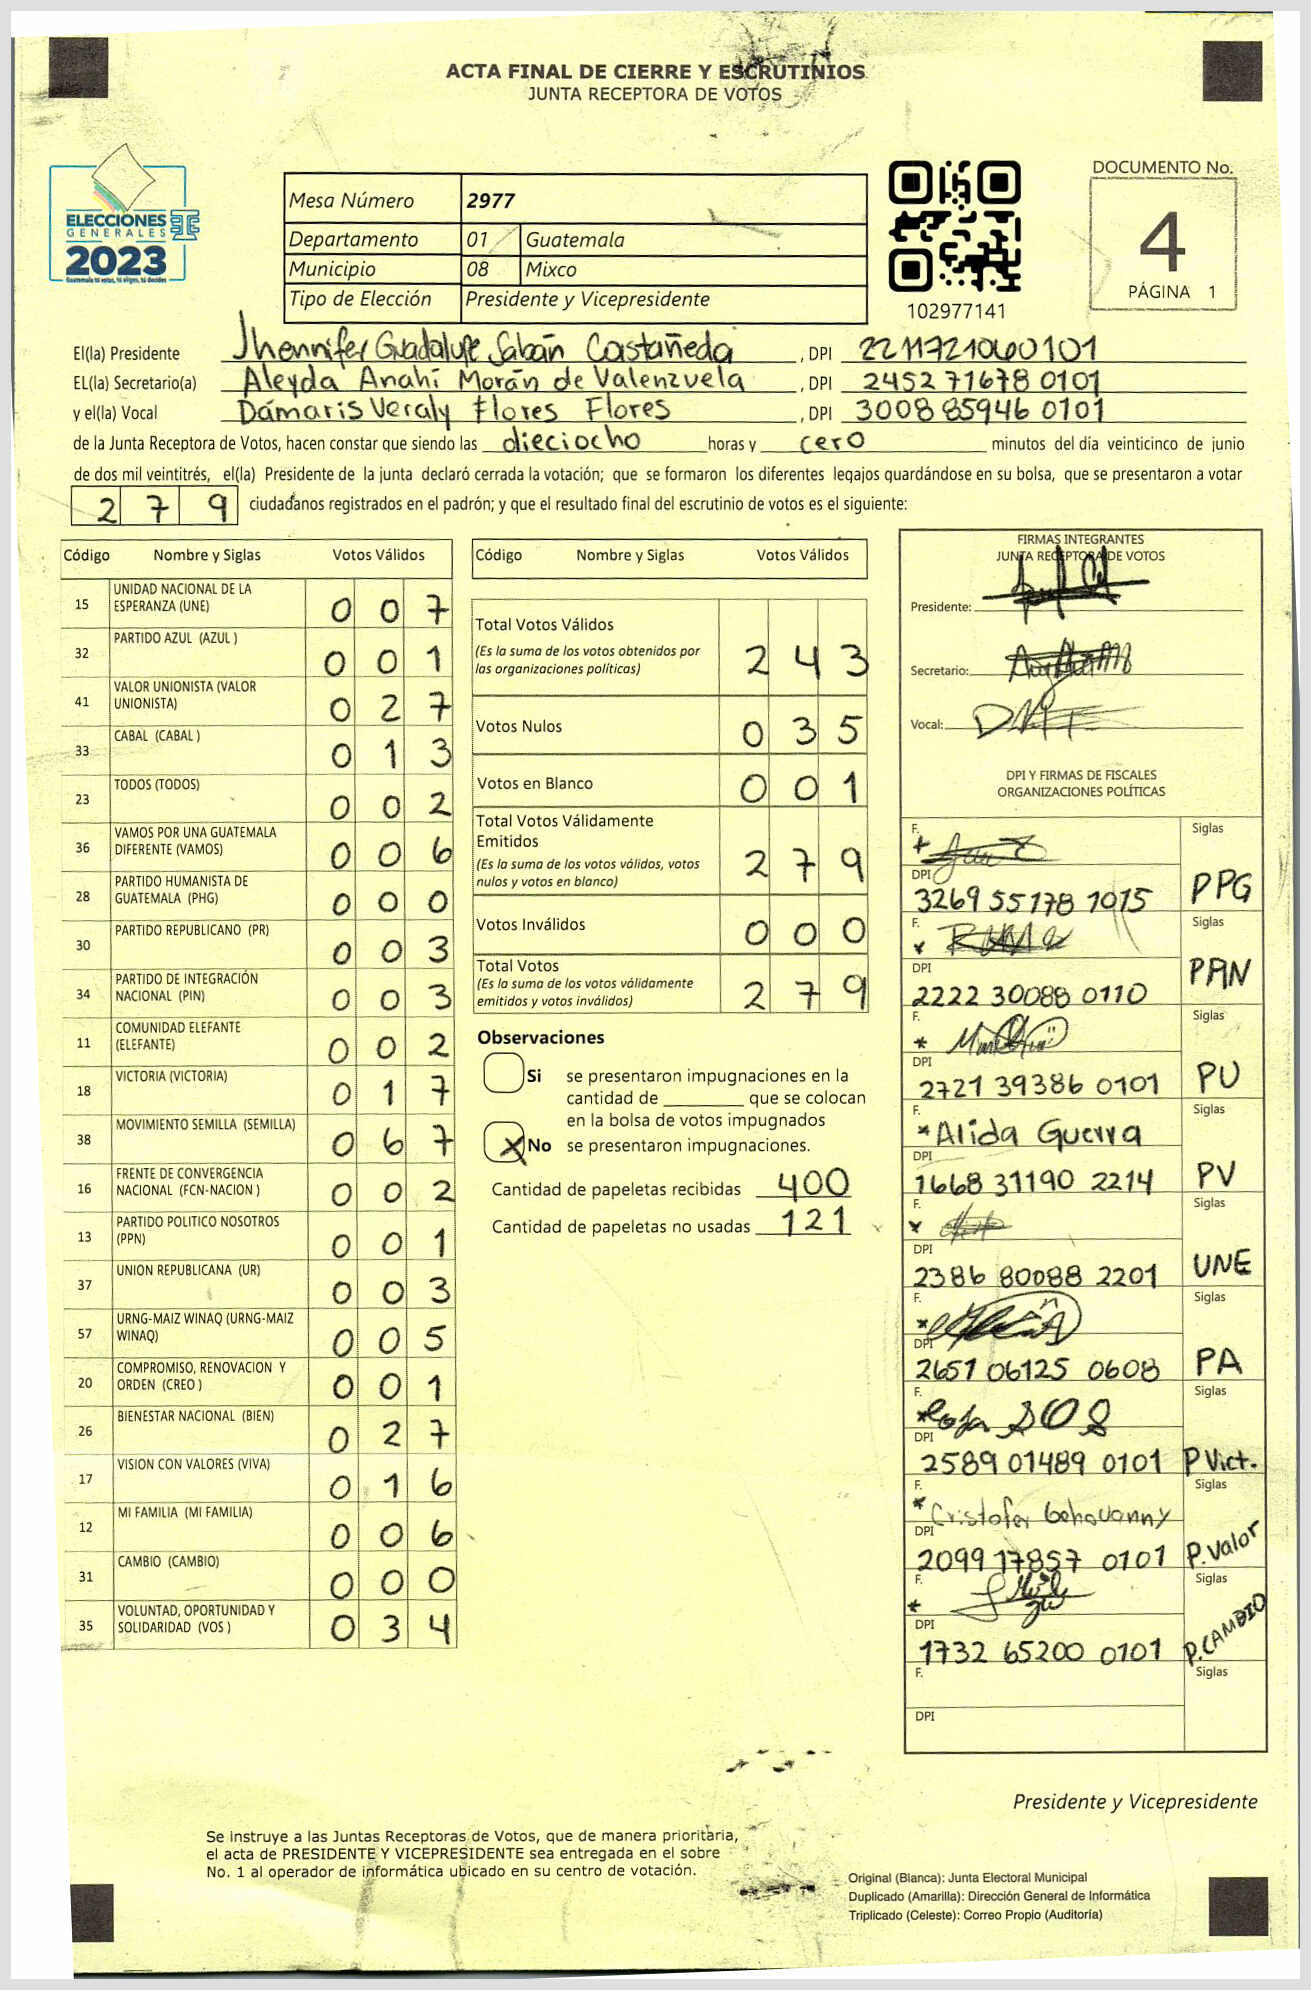 ACTA FINAL DE CIERRE Y ESCRUTINIOS
JUNTA RECEPTORA DE VOTOS
ELECCIONES
GENERALES
2023
Guatemala tú votas, tú eliges, tú decides
Mesa Número 2977
Departamento 01 Guatemala
Municipio 08 Mixco
Tipo de Elección Presidente y Vicepresidente
102977141
DOCUMENTO No.
4
PÁGINA 1
El(la) Presidente Jhennifer Guadalupe Sabán Castañeda, DPI 2211721060101
EL(la) Secretario(a) Aleyda Anahí Morán de Valenzuela, DPI 2452 71678 0101
y el(la) Vocal Dámaris Veraly Flores Flores, DPI 3008 85946 0101
de la Junta Receptora de Votos, hacen constar que siendo las dieciocho horas y cero minutos del día veinticinco de junio
de dos mil veintitrés, el(la) Presidente de la junta declaró cerrada la votación; que se formaron los diferentes legajos guardándose en su bolsa, que se presentaron a votar
2 7 9 ciudadanos registrados en el padrón; y que el resultado final del escrutinio de votos es el siguiente:
Código Nombre y Siglas Votos Válidos
15 UNIDAD NACIONAL DE LA ESPERANZA (UNE) 0 0 7
32 PARTIDO AZUL (AZUL ) 0 0 1
41 VALOR UNIONISTA (VALOR UNIONISTA) 0 2 7
33 CABAL (CABAL ) 0 1 3
23 TODOS (TODOS) 0 0 2
36 VAMOS POR UNA GUATEMALA DIFERENTE (VAMOS) 0 0 6
28 PARTIDO HUMANISTA DE GUATEMALA (PHG) 0 0 0
30 PARTIDO REPUBLICANO (PR) 0 0 3
34 PARTIDO DE INTEGRACIÓN NACIONAL (PIN) 0 0 3
11 COMUNIDAD ELEFANTE (ELEFANTE) 0 0 2
18 VICTORIA (VICTORIA) 0 1 7
38 MOVIMIENTO SEMILLA (SEMILLA) 0 6 7
16 FRENTE DE CONVERGENCIA NACIONAL (FCN-NACION ) 0 0 2
13 PARTIDO POLITICO NOSOTROS (PPN) 0 0 1
37 UNION REPUBLICANA (UR) 0 0 3
57 URNG-MAIZ WINAQ (URNG-MAIZ WINAQ) 0 0 5
20 COMPROMISO, RENOVACION Y ORDEN (CREO ) 0 0 1
26 BIENESTAR NACIONAL (BIEN) 0 2 7
17 VISION CON VALORES (VIVA) 0 1 6
12 MI FAMILIA (MI FAMILIA) 0 0 6
31 CAMBIO (CAMBIO) 0 0 0
35 VOLUNTAD, OPORTUNIDAD Y SOLIDARIDAD (VOS ) 0 3 4
Código Nombre y Siglas Votos Válidos
Total Votos Válidos
(Es la suma de los votos obtenidos por
las organizaciones políticas) 2 4 3
Votos Nulos 0 3 5
Votos en Blanco 0 0 1
Total Votos Válidamente
Emitidos
(Es la suma de los votos válidos, votos
nulos y votos en blanco) 2 7 9
Votos Inválidos 0 0 0
Total Votos
(Es la suma de los votos válidamente
emitidos y votos inválidos) 2 7 9
Observaciones
Si se presentaron impugnaciones en la
cantidad de ________ que se colocan
en la bolsa de votos impugnados
X No se presentaron impugnaciones.
Cantidad de papeletas recibidas 400
Cantidad de papeletas no usadas 121
FIRMAS INTEGRANTES
JUNTA RECEPTORA DE VOTOS
Presidente:
Secretario:
Vocal:
DPI Y FIRMAS DE FISCALES
ORGANIZACIONES POLÍTICAS
F. Siglas
DPI 3269 55178 1015 PPG
F. Siglas
DPI 2222 30088 0110 PAN
F. Siglas
DPI 2721 39386 0101 PU
F. *Alida Guerra Siglas
DPI 1668 31190 2214 PV
F. Siglas
DPI 2386 80088 2201 UNE
F. Siglas
DPI 2651 06125 0608 PA
F. Siglas
DPI 2589 01489 0101 P Vict.
F. *Cristofer Gehovanny Siglas
DPI 2099 17857 0101 P. Valor
F. Siglas
DPI 1732 65200 0101 P. CAMBIO
F. Siglas
DPI
Presidente y Vicepresidente
Se instruye a las Juntas Receptoras de Votos, que de manera prioritaria,
el acta de PRESIDENTE Y VICEPRESIDENTE sea entregada en el sobre
No. 1 al operador de informática ubicado en su centro de votación.
Original (Blanca): Junta Electoral Municipal
Duplicado (Amarilla): Dirección General de Informática
Triplicado (Celeste): Correo Propio (Auditoría)